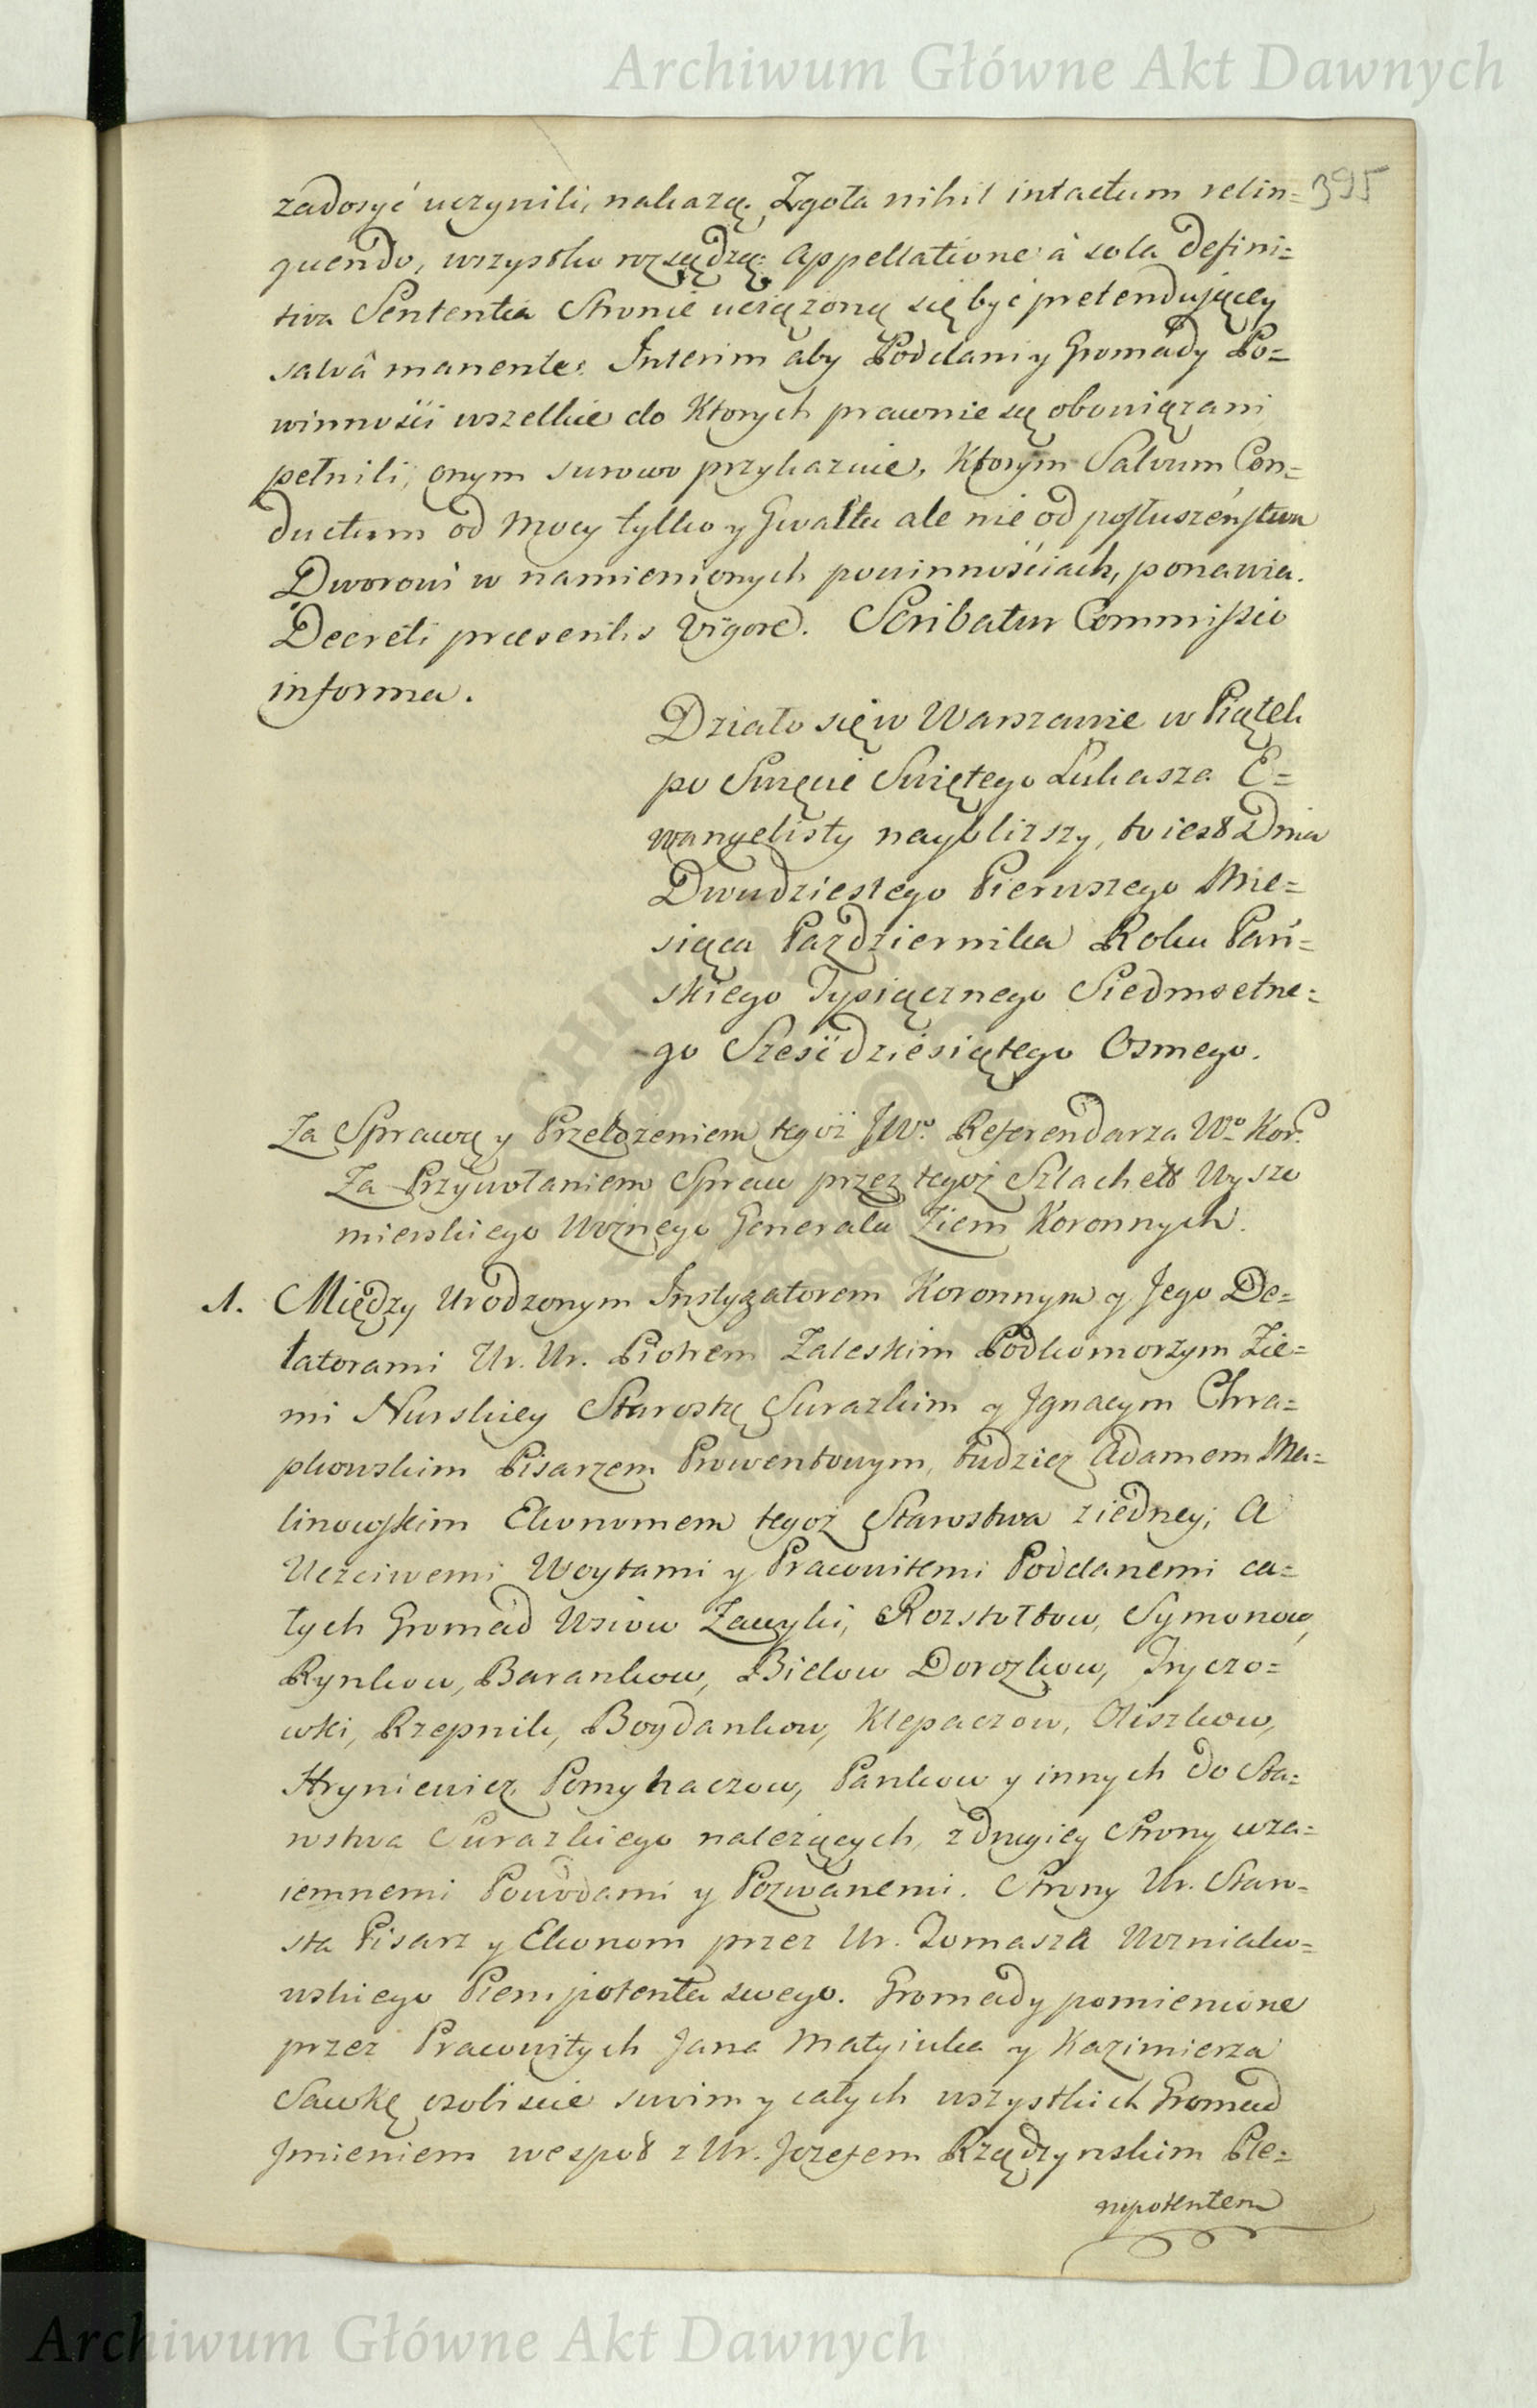 Archiwum Główne Akt Dawnych
395
zadosyć uczynili, nakażą. Zgoła nihil intactum relin=
quendo, wszystko rozsądzą: Appellatione à sola defini=
tiva Sententia Stronie uciążoną się być pretenduiącey
salvâ manente: Interim aby Poddani y Gromady Po=
winności wszelkie do Ktorych prawnie są obowiązani
pełnili, onym surowo przykazuie, Ktorym Salvum Con=
ductum od Mocy tylko y Gwałtu ale nie od posłuszeństwa
Dworowi w namienionych powinnościach, ponawia.
Decreti præsentis Vigore. Scribatur Commissio
in forma.
Działo się w Warszawie w Piątek
po Swięcie Swiętego Łukasza E=
wangelisty nayblizszy, to iest Dnia
Dwudziestego Pierwszego Mie=
siąca Pazdziernika Roku Pań=
skiego Tysiącznego Siedmsetne=
go Sześćdziesiątego Osmego.
Za Sprawą y Przełożeniem tegoż JWo. Referendarza Wo. Kor.
Za Przywołaniem Spraw przez tegoż Szlachett Wyszo
mierskiego Woźnego Generała Ziem Koronnych.
1. Między Urodzonym Instygatorem Koronnym y Jego De=
latorami Ur. Ur. Piotrem Zaleskim Podkomorzym Zie=
mi Nurskiey Starostą Surazkim y Jgnacym Chra=
pkowskim Pisarzem Prowentowym, tudziez Adamem Ma=
linowskim Ekonomem tegoż Starostwa ziedney; A
Uczciwemi Woytami y Pracowitemi Poddanemi ca=
łych Gromad Wsiow Zawyki, Rozstołtow, Symonow,
Rynkow, Barankow, Bielow Dorozkow, Tryczo=
wki, Rzepnik, Bogdankow, Klepaczow, Oliszkow,
Hryniewicz Pomyhaczow, Pankow y innych do Sta=
rostwa Surazkiego należących, z drugiey Strony wza=
iemnemi Powodami y Pozwanemi. Strony Ur. Staro=
sta Pisarz y Ekonom przez Ur. Tomasza Wozniako=
wskiego Plenipotenta swego. Gromady pomienione
przez Pracowitych Jana Matyiuka y Kazimierza
Sawkę osobiscie swoim y całych wszystkich Gromad
Jmieniem wespoł z Ur. Jozefem Rządzynskim Ple=
nipotentem
Archiwum Główne Akt Dawnych